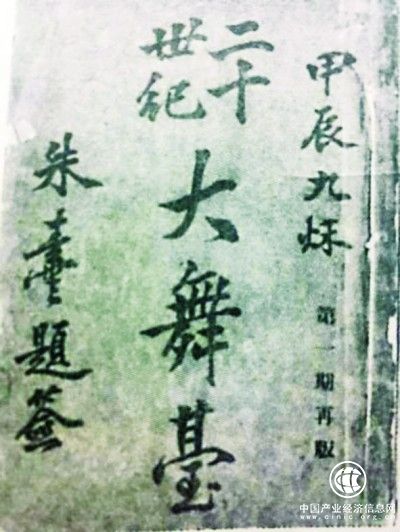 甲辰九秌
第一期再版
二十
世紀
大舞臺
朱 題簽
中国产业经济信息网
www.cinic.org.cn